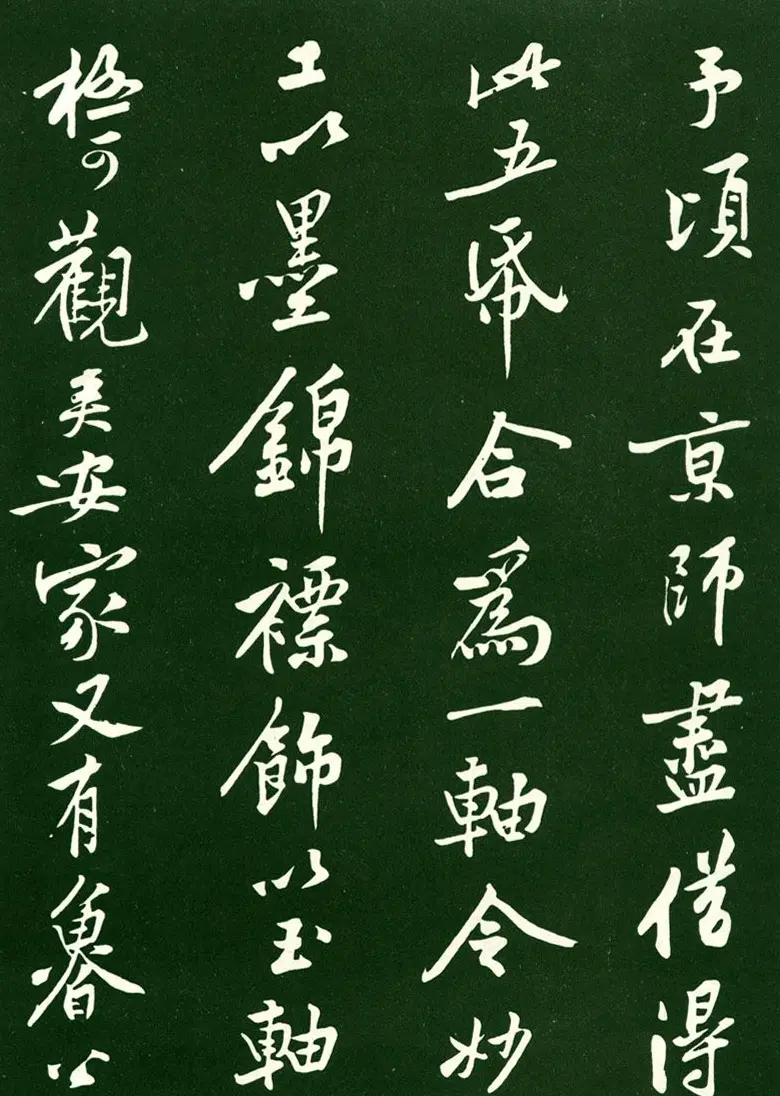 予頃在京師盡借得
此五帋合為一軸令妙
工以墨錦褾飾以玉軸
極可觀夷安家又有魯公